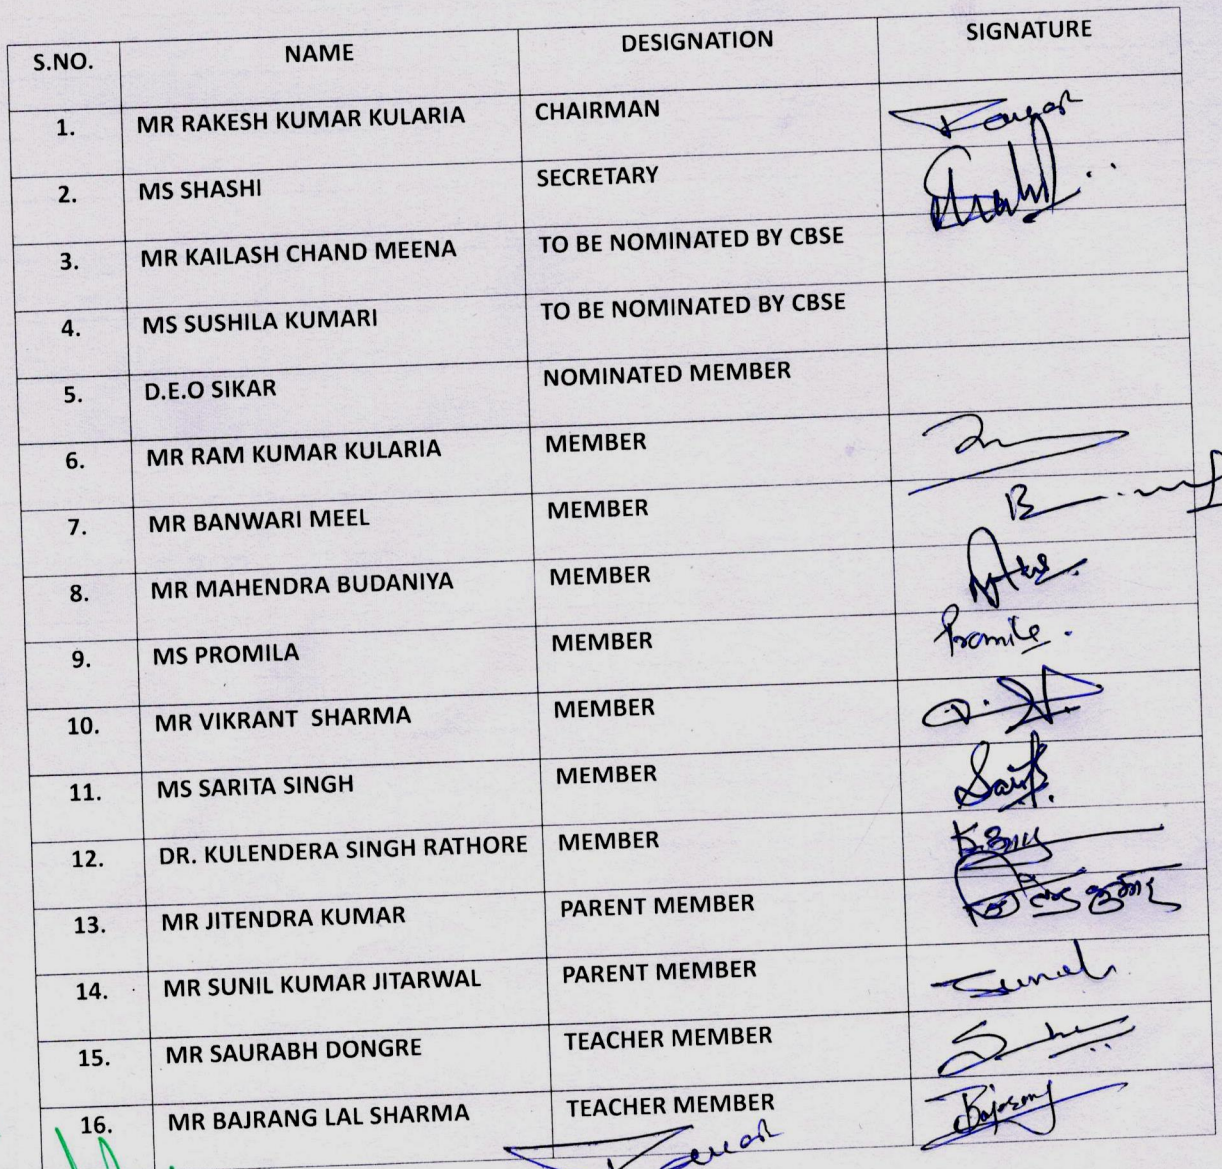 S.NO. NAME DESIGNATION SIGNATURE
1. MR RAKESH KUMAR KULARIA CHAIRMAN
2. MS SHASHI SECRETARY
3. MR KAILASH CHAND MEENA TO BE NOMINATED BY CBSE
4. MS SUSHILA KUMARI TO BE NOMINATED BY CBSE
5. D.E.O SIKAR NOMINATED MEMBER
6. MR RAM KUMAR KULARIA MEMBER
7. MR BANWARI MEEL MEMBER
8. MR MAHENDRA BUDANIYA MEMBER
9. MS PROMILA MEMBER Promila.
10. MR VIKRANT SHARMA MEMBER
11. MS SARITA SINGH MEMBER
12. DR. KULENDERA SINGH RATHORE MEMBER
13. MR JITENDRA KUMAR PARENT MEMBER
14. MR SUNIL KUMAR JITARWAL PARENT MEMBER
15. MR SAURABH DONGRE TEACHER MEMBER
16. MR BAJRANG LAL SHARMA TEACHER MEMBER